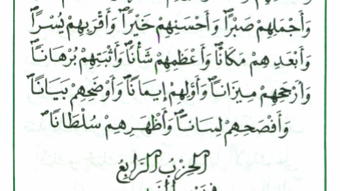 وَأَجْمَلِهِمْ صَبْرًا وَأَحْسَنِهِمْ خَيْرًا وَأَقْرَبِهِمْ يُسْرًا
وَأَبْعَدِهِمْ مَكَانًا وَأَعْظَمِهِمْ شَأْنًا وَأَثْبَتِهِمْ بُرْهَانًا
وَأَرْجَحِهِمْ مِيزَانًا وَأَوَّلِهِمْ إِيمَانًا وَأَوْضَحِهِمْ بَيَانًا
وَأَفْصَحِهِمْ لِسَانًا وَأَظْهَرِهِمْ سُلْطَانًا
اَلْحِزْبُ الرَّابِعُ